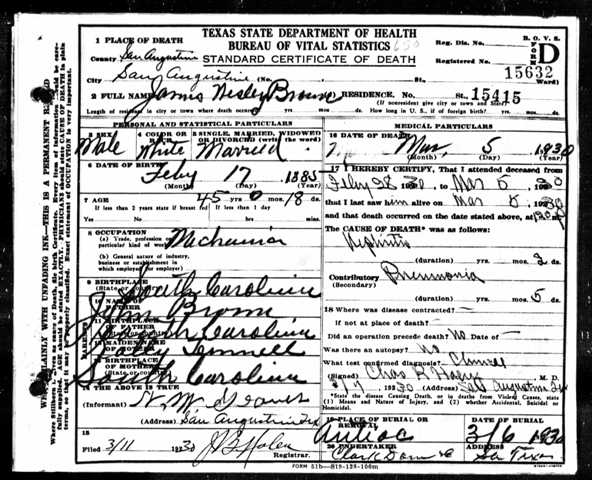 TEXAS STATE DEPARTMENT OF HEALTH
BUREAU OF VITAL STATISTICS 650
STANDARD CERTIFICATE OF DEATH
B. O. V. S. FORM D
Reg. Dis. No.
Registered No. 15632
1 PLACE OF DEATH
County San Augustine
City San Augustine (No. St. Ward)
2 FULL NAME James Wesley Brown RESIDENCE. No. 15415 St.
Length of residence in city or town where death occurred yrs. mos. ds.
(If nonresident give city or town and State)
How long in U. S., if of foreign birth? yrs. mos. ds.
PERSONAL AND STATISTICAL PARTICULARS
3 SEX Male
4 COLOR OR RACE White
5 SINGLE, MARRIED, WIDOWED OR DIVORCED (write the word) Married
6 DATE OF BIRTH Feby 17 1885
(Month) (Day) (Year)
7 AGE 45 yrs 0 mos. 18 ds.
If less than 2 years state if breast fed If less than 1 day
Yes No hrs. min.
8 OCCUPATION
(a) Trade, profession or particular kind of work
(b) General nature of industry, business or establishment in which employed (or employer)
9 BIRTHPLACE
(State or South Carolina
10 NAME OF FATHER John Brown
11 BIRTHPLACE OF FATHER South Carolina
12 MAIDEN NAME OF MOTHER
13 BIRTHPLACE OF MOTHER South Carolina
14 THE ABOVE IS TRUE
(Informant)
(Address) San Augustine Tex
15
Filed 3/11 1930
Registrar.
MEDICAL PARTICULARS
16 DATE OF DEATH
Mar, 5 1930
(Month) (Day) (Year)
17 I HEREBY CERTIFY, That I attended deceased from
Feby 28 1930 to Mar 5 1930
that I last saw him alive on Mar 5 1930
and that death occurred on the date stated above, at
The CAUSE OF DEATH* was as follows:
Nephritis
(duration) yrs. mos. 2 ds.
Contributory (Secondary) Pneumonia
(duration) yrs. mos. 5 ds.
18 Where was disease contracted?
if not at place of death?
Did an operation precede death? No Date of
Was there an autopsy? No
What test confirmed diagnosis? Clinical
(Signed) M. D.
1930 (Address) San Augustine Tex
*State the Disease Causing Death, or in deaths from Violent Causes, state (1) Means and Nature of Injury, and (2) whether Accidental, Suicidal or Homicidal.
19 PLACE OF BURIAL OR REMOVAL DATE OF BURIAL
Antioc 3/6 1930
20 UNDERTAKER
FORM 51b